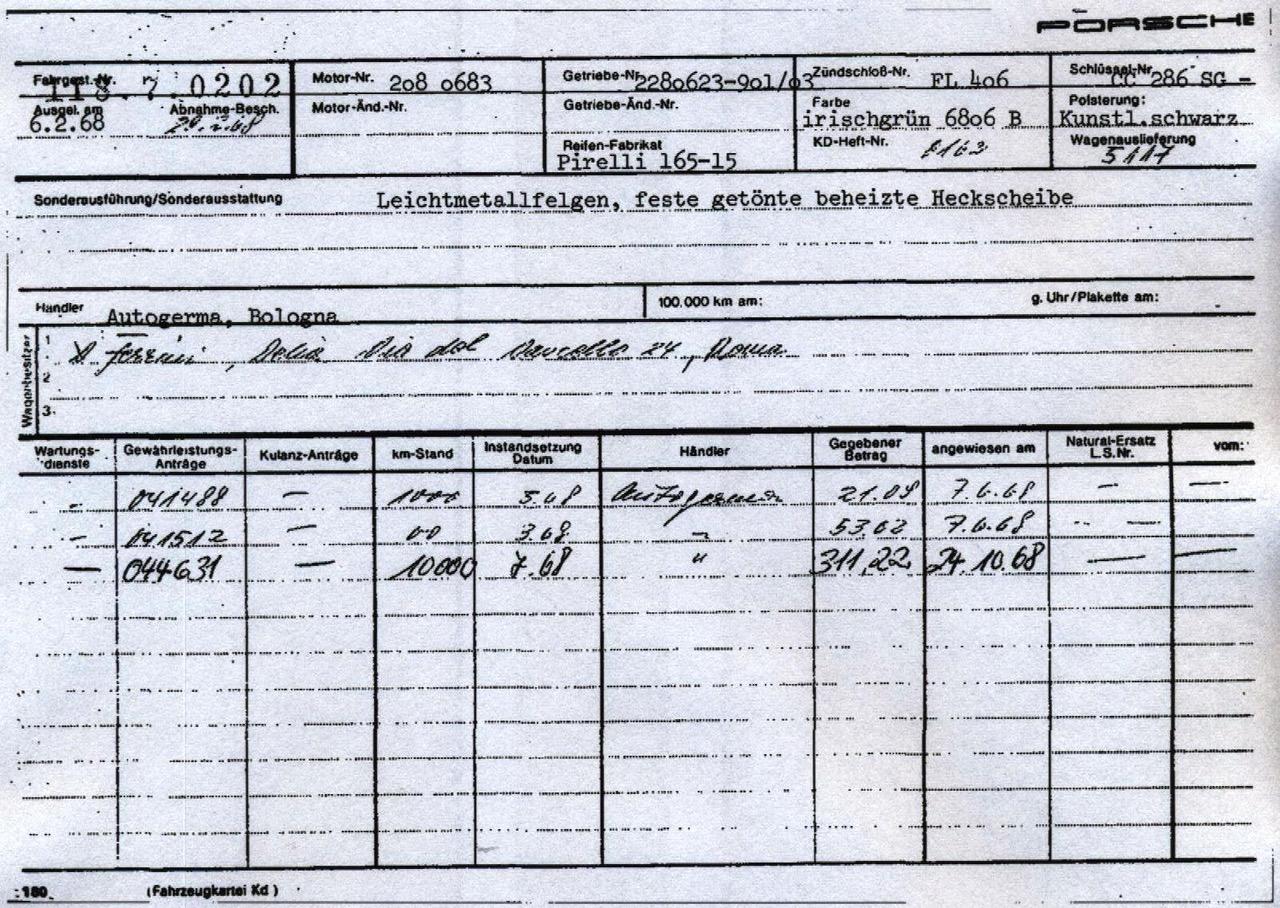 PORSCHE
Fahrgest.-Nr. 118.7.0202 Motor-Nr. 208 0683 Getriebe-Nr. 2280623-901/03 Zündschloß-Nr. FL 406 Schlüssel-Nr. CC 286 SG -
Ausgel. am 6.2.68 Abnahme-Besch. Motor-Änd.-Nr. Getriebe-Änd.-Nr. Farbe irischgrün 6806 B Polsterung: Kunstl.schwarz
Reifen-Fabrikat Pirelli 165-15 KD-Heft-Nr. Wagenauslieferung 5117
Sonderausführung/Sonderausstattung Leichtmetallfelgen, feste getönte beheizte Heckscheibe
Händler Autogerma, Bologna 100.000 km am: g. Uhr/Plakette am:
Wagenbesitzer
1 Ferrini, Delia Via del 24, Roma
2
3.
Wartungs-dienste Gewährleistungs-Anträge Kulanz-Anträge km-Stand Instandsetzung Datum Händler Gegebener Betrag angewiesen am Natural-Ersatz L.S.Nr. vom:
– 041488 — 1000 3.68 Autogerma 21.09 7.6.68 – —
– 041512 — 00 3.68 – 53.62 7.6.68 -- —
— 044631 — 10000 7.68 " 311,22 24.10.68 — —
180 (Fahrzeugkartei Kd)